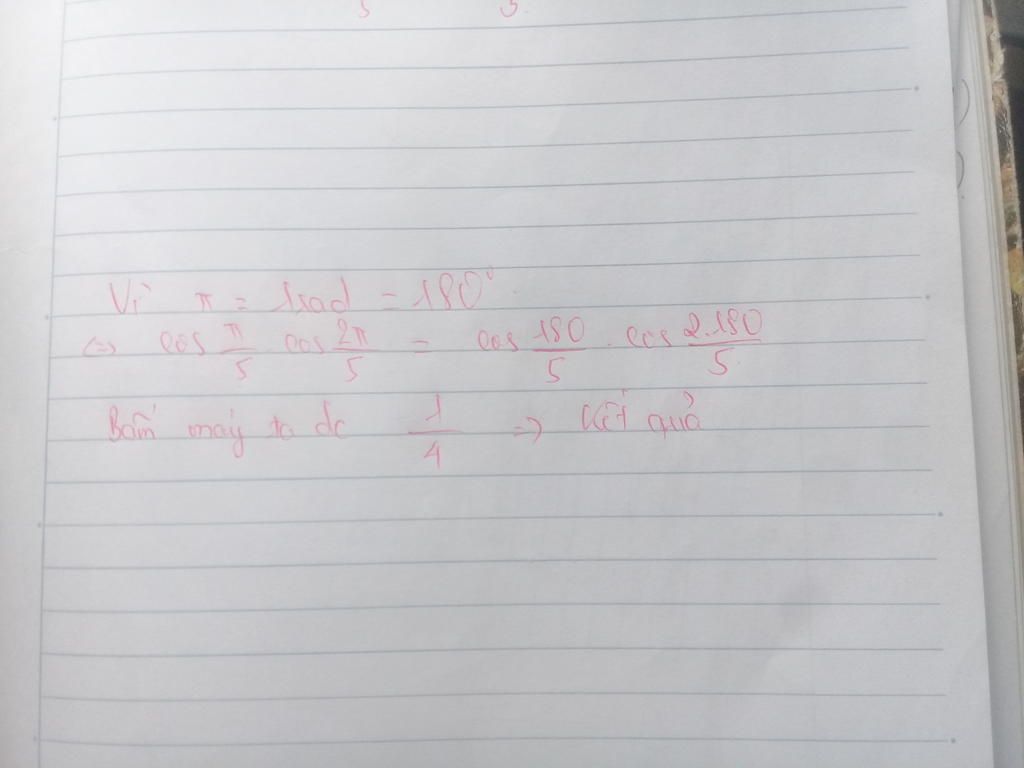 Vì π = 1 rad = 180°
<=> cos π/5 . cos 2π/5 = cos 180/5 . cos 2.180/5
Bấm máy ta đc 1/4 => Kết quả